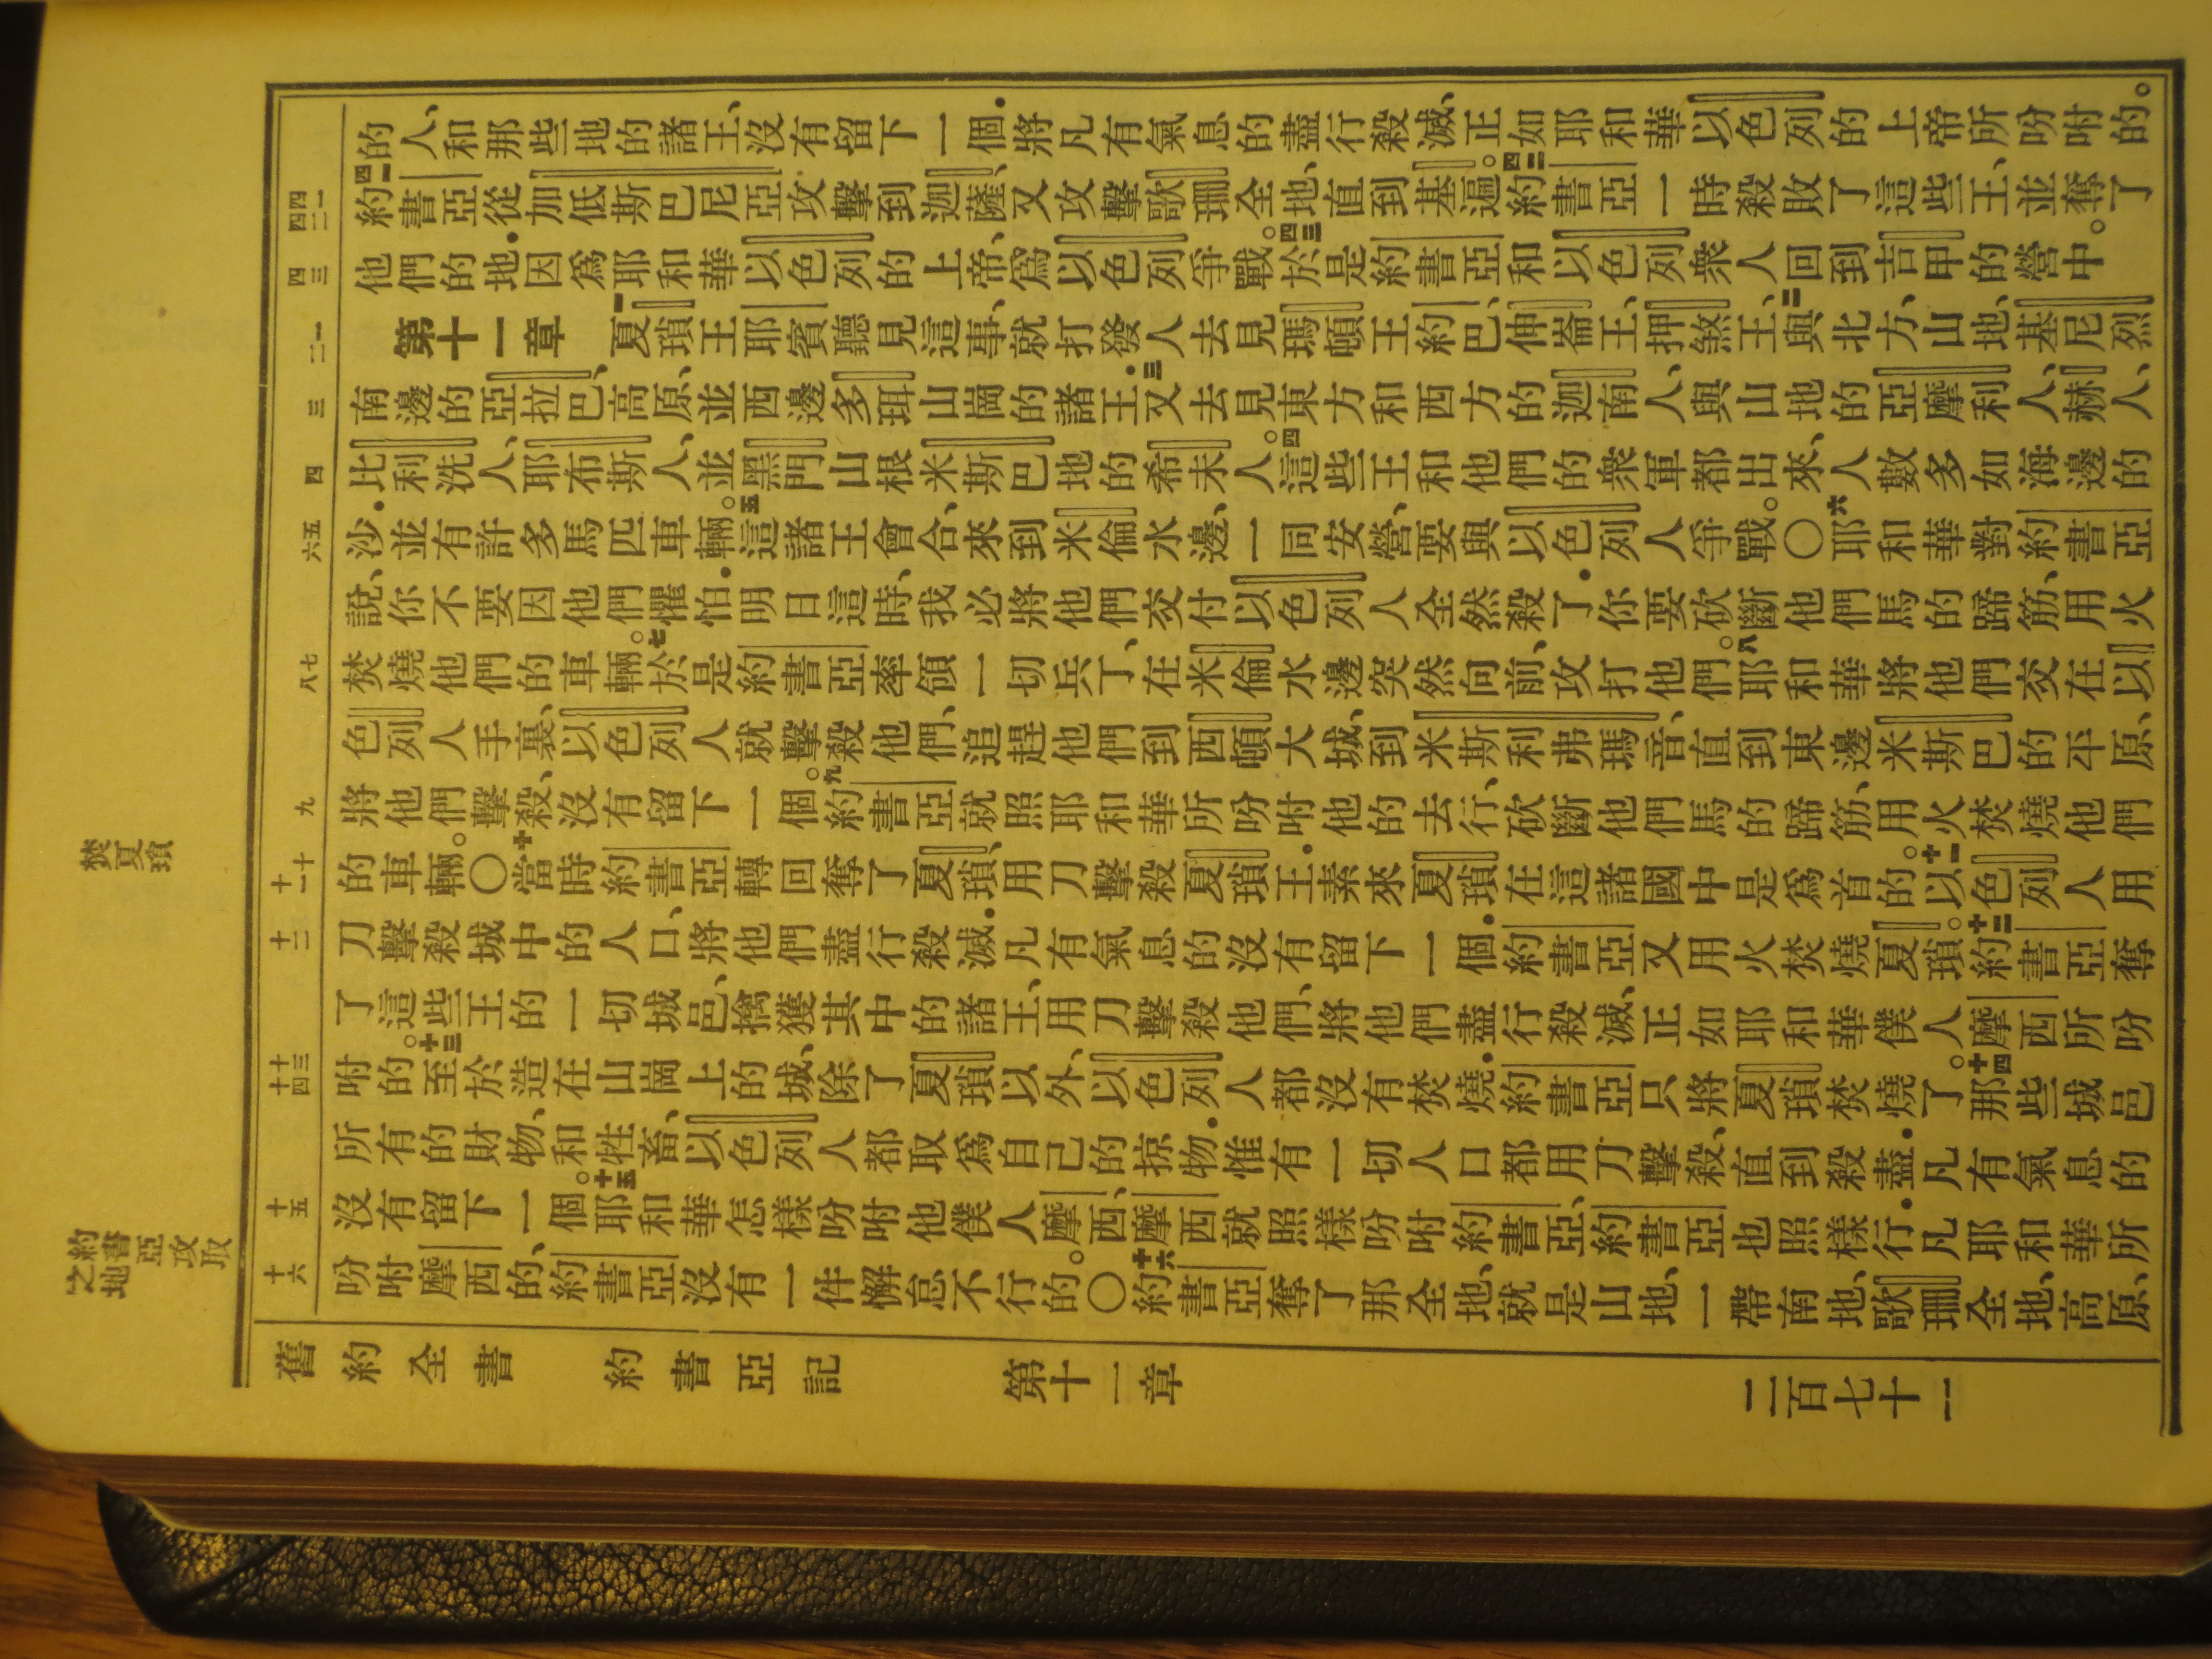 的人、和那些地的諸王、沒有留下一個．將凡有氣息的盡行殺滅、正如耶和華以色列的上帝所吩咐的。
四一約書亞從加低斯巴尼亞攻擊到迦薩、又攻擊歌珊全地、直到基遍。四二約書亞一時殺敗了這些王、並奪了
他們的地．因爲耶和華以色列的上帝、爲以色列爭戰。四三於是約書亞和以色列衆人回到吉甲的營中。
第十一章 一夏瑣王耶賓聽見這事、就打發人去見瑪頓王約巴、伸崙王、押煞王、二與北方、山地、基尼烈
南邊的亞拉巴、高原、並西邊多珥山崗的諸王．三又去見東方和西方的迦南人、與山地的亞摩利人、赫人、
比利洗人、耶布斯人、並黑門山根米斯巴地的希未人。四這些王和他們的衆軍都出來、人數多如海邊的
沙．並有許多馬匹車輛。五這諸王會合、來到米倫水邊、一同安營、要與以色列人爭戰。〇六耶和華對約書亞
說、你不要因他們懼怕．明日這時、我必將他們交付以色列人全然殺了．你要砍斷他們馬的蹄筋、用火
焚燒他們的車輛。七於是約書亞率領一切兵丁、在米倫水邊突然向前、攻打他們。八耶和華將他們交在以
色列人手裏、以色列人就擊殺他們、追趕他們到西頓大城、到米斯利弗瑪音、直到東邊米斯巴的平原、
將他們擊殺、沒有留下一個。九約書亞就照耶和華所吩咐他的去行、砍斷他們馬的蹄筋、用火焚燒他們
的車輛。〇十當時約書亞轉回奪了夏瑣、用刀擊殺夏瑣王．素來夏瑣在這諸國中是爲首的。十一以色列人用
刀擊殺城中的人口、將他們盡行殺滅．凡有氣息的沒有留下一個．約書亞又用火焚燒夏瑣。十二約書亞奪
了這些王的一切城邑、擒獲其中的諸王、用刀擊殺他們、將他們盡行殺滅、正如耶和華僕人摩西所吩
咐的。十三至於造在山崗上的城、除了夏瑣以外、以色列人都沒有焚燒．約書亞只將夏瑣焚燒了。十四那些城邑
所有的財物、和牲畜、以色列人都取爲自己的掠物．惟有一切人口都用刀擊殺、直到殺盡．凡有氣息的
沒有留下一個。十五耶和華怎樣吩咐他僕人摩西、摩西就照樣吩咐約書亞、約書亞也照樣行．凡耶和華所
吩咐摩西的、約書亞沒有一件懈怠不行的。〇十六約書亞奪了那全地、就是山地、一帶南地、歌珊全地、高原、
四一
四二
四三
一
二
三
四
五
六
七
八
九
十
十一
十二
十三
十四
十五
十六
焚夏瑣
約書亞攻取
之地
舊約全書 約書亞記 第十一章 二百七十一